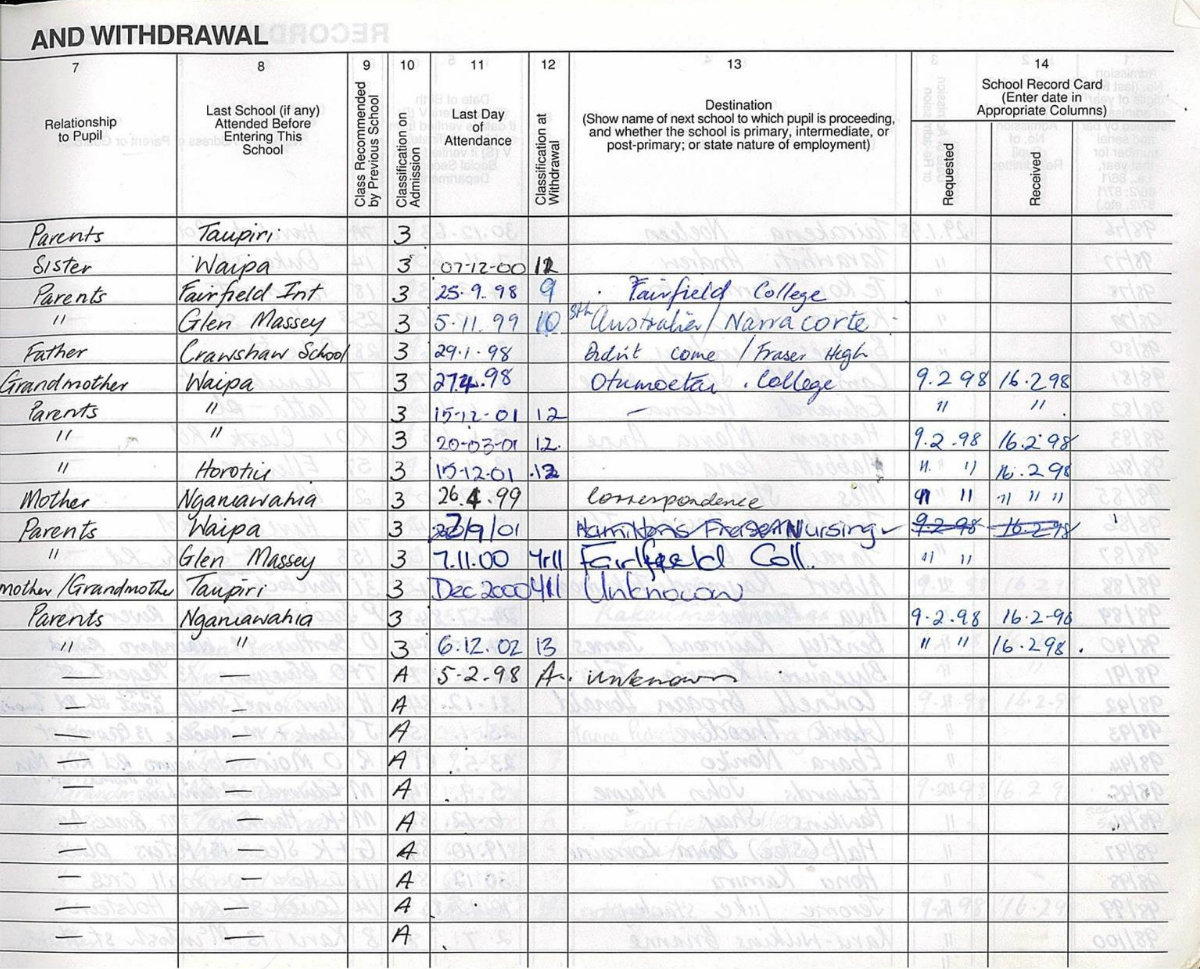 AND WITHDRAWAL
7 8 9 10 11 12 13 14
Relationship to Pupil
Last School (if any) Attended Before Entering This School
Class Recommended by Previous School
Classification on Admission
Last Day of Attendance
Classification at Withdrawal
Destination
(Show name of next school to which pupil is proceeding, and whether the school is primary, intermediate, or post-primary; or state nature of employment)
School Record Card (Enter date in Appropriate Columns)
Requested
Received
Parents Taupiri 3
Sister Waipa 3 07-12-00 12
Parents Fairfield Int 3 25.9.98 9 Fairfield College
" Glen Massey 3 5.11.99 10 Sth Australia / Narracorte
Father Crawshaw School 3 29.1.98 Didn't come / Fraser High
Grandmother Waipa 3 27.4.98 Otumoetai College 9.2 98 16.2.98
Parents " 3 15-12-01 12 — " "
" " 3 20-03-01 12. 9.2.98 16.2.98
" Horotiu 3 15-12-01 .12 " " 16.2.98
Mother Ngaruawahia 3 26.4.99 Correspondence " " " " "
Parents Waipa 3 /9/01 Hamilton's Fraser Nursing 9.2.98 16.2.98
" Glen Massey 3 7.11.00 Yr11 Fairfield Coll. " "
mother/Grandmother Taupiri 3 Dec 2000 Y11 Unknown
Parents Ngaruawahia 3 9.2.98 16.2-98
" " 3 6.12.02 13 " " 16.2.98.
— — A 5-2.98 A. unknown
— — A
— — A
— — A
— — A
— — A
— — A
— — A
— — A
— — A